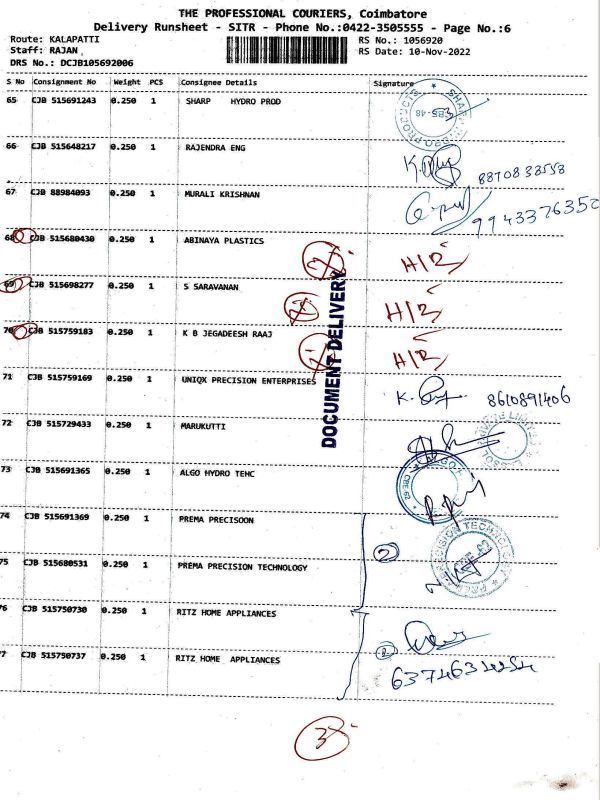 THE PROFESSIONAL COURIERS, Coimbatore
Delivery Runsheet - SITR - Phone No.:0422-3505555 - Page No.:6
Route: KALAPATTI RS No.: 1056920
Staff: RAJAN RS Date: 10-Nov-2022
DRS No.: DCJB105692006
S No Consignment No Weight PCS Consignee Details Signature
65 CJB 515691243 0.250 1 SHARP HYDRO PROD
66 CJB 515648217 0.250 1 RAJENDRA ENG
67 CJB 88984093 0.250 1 MURALI KRISHNAN
9943376352
68 CJB 515680430 0.250 1 ABINAYA PLASTICS
69 CJB 515698277 0.250 1 S SARAVANAN
70 CJB 515759183 0.250 1 K B JEGADEESH RAAJ
DOCUMENT DELIVERY
71 CJB 515759169 0.250 1 UNIQX PRECISION ENTERPRISES 8610891406
72 CJB 515729433 0.250 1 MARUKUTTI
73 CJB 515691365 0.250 1 ALGO HYDRO TEHC
74 CJB 515691369 0.250 1 PREMA PRECISOON
75 CJB 515680531 0.250 1 PREMA PRECISION TECHNOLOGY
76 CJB 515750730 0.250 1 RITZ HOME APPLIANCES
77 CJB 515750737 0.250 1 RITZ HOME APPLIANCES